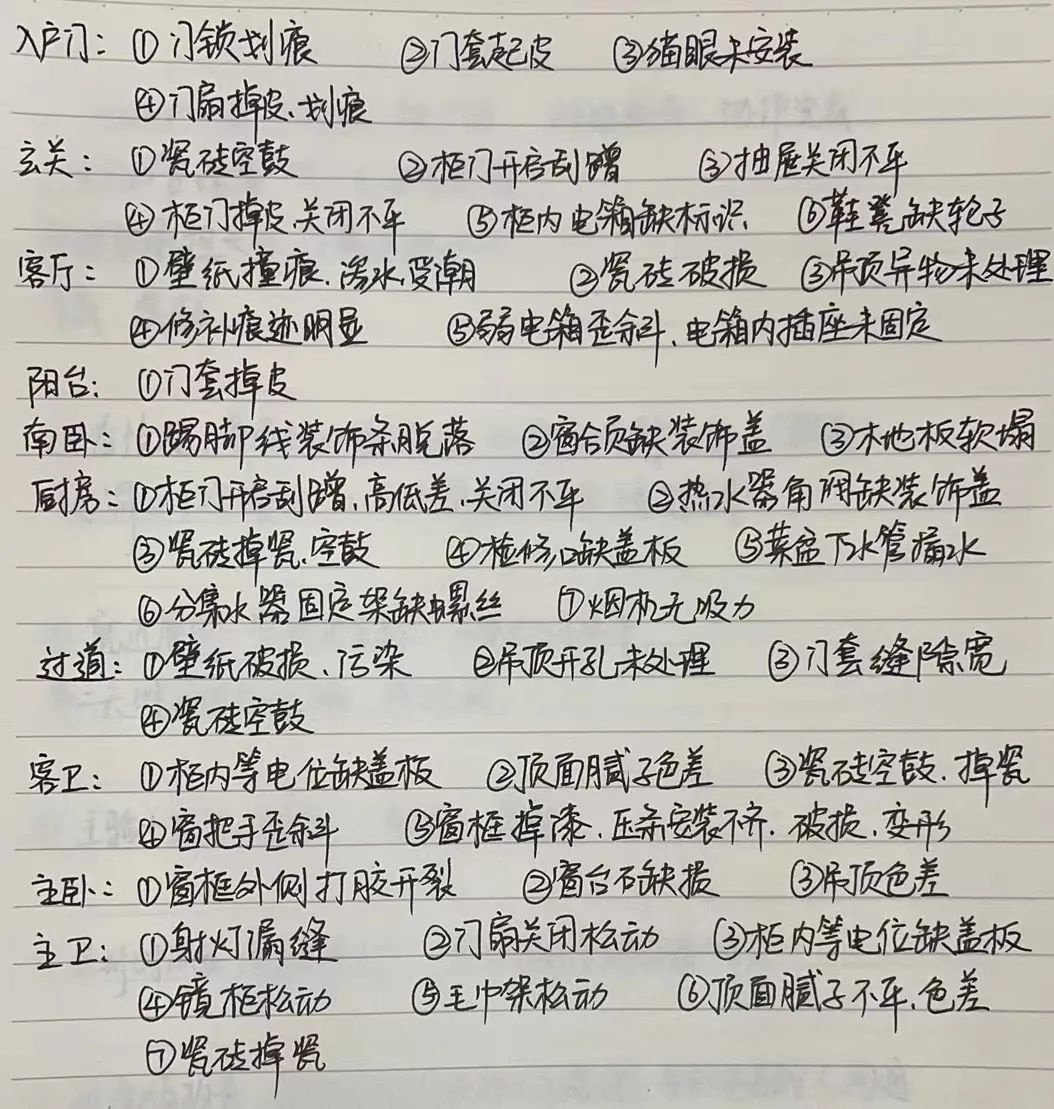 入户门：①门锁划痕 ②门套起皮 ③猫眼未安装
④门扇掉皮、划痕
玄关：①瓷砖空鼓 ②柜门开启刮蹭 ③抽屉关闭不平
④柜门掉皮、关闭不平 ⑤柜内电箱缺标识 ⑥鞋凳缺轮子
客厅：①壁纸撞痕、渗水、受潮 ②瓷砖破损 ③吊顶异物未处理
④修补痕迹明显 ⑤弱电箱歪斜、电箱内插座未固定
阳台：①门套掉皮
南卧：①踢脚线装饰条脱落 ②窗合页缺装饰盖 ③木地板软塌
厨房：①柜门开启刮蹭、高低差、关闭不平 ②热水器角阀缺装饰盖
③瓷砖掉瓷、空鼓 ④检修口缺盖板 ⑤菜盆下水管漏水
⑥分集水器固定架缺螺丝 ⑦烟机无吸力
过道：①壁纸破损、污染 ②吊顶开孔未处理 ③门套缝隙宽
④瓷砖空鼓
客卫：①柜内等电位缺盖板 ②顶面腻子色差 ③瓷砖空鼓、掉瓷
④窗把手歪斜 ⑤窗框掉漆、压条安装不齐、破损、变形
主卧：①窗框外侧打胶开裂 ②窗台石缺损 ③吊顶色差
主卫：①射灯漏缝 ②门扇关闭松动 ③柜内等电位缺盖板
④镜柜松动 ⑤毛巾架松动 ⑥顶面腻子不平、色差
⑦瓷砖掉瓷